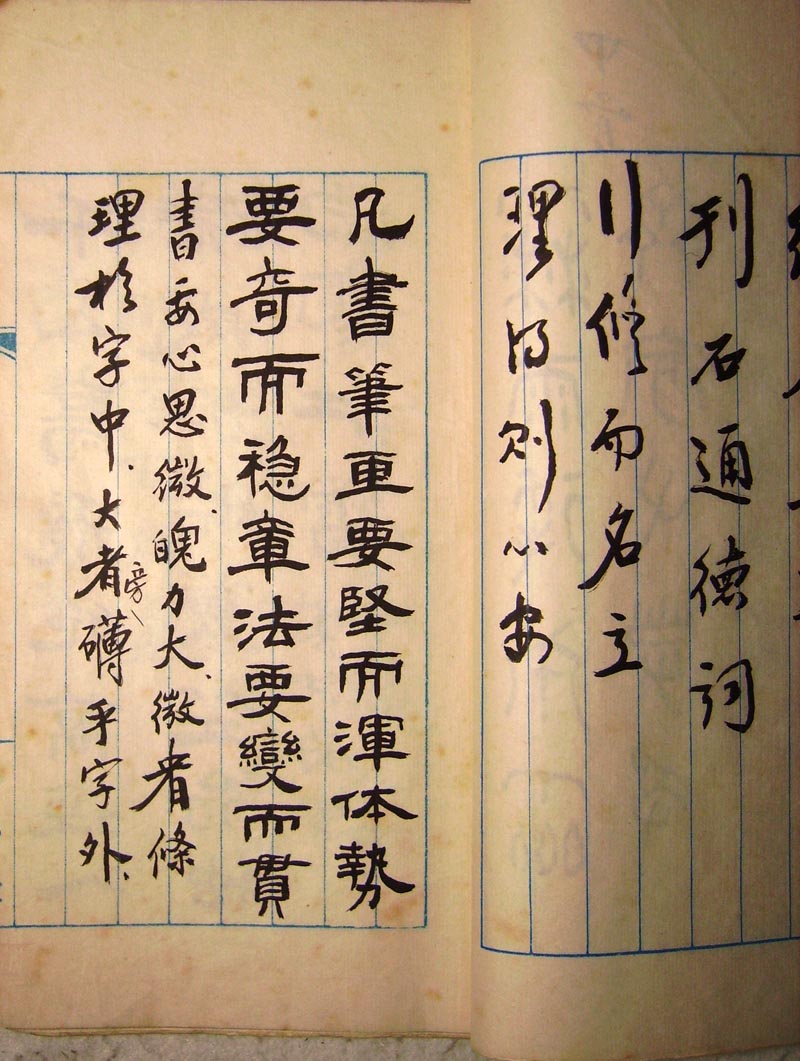 刊石通德詞
行修而名立
理得則心安
凡書筆画要堅而渾体勢
要奇而稳章法要變而貫
書要心思微、魄力大、微者條
理於字中、大者旁礴乎字外、